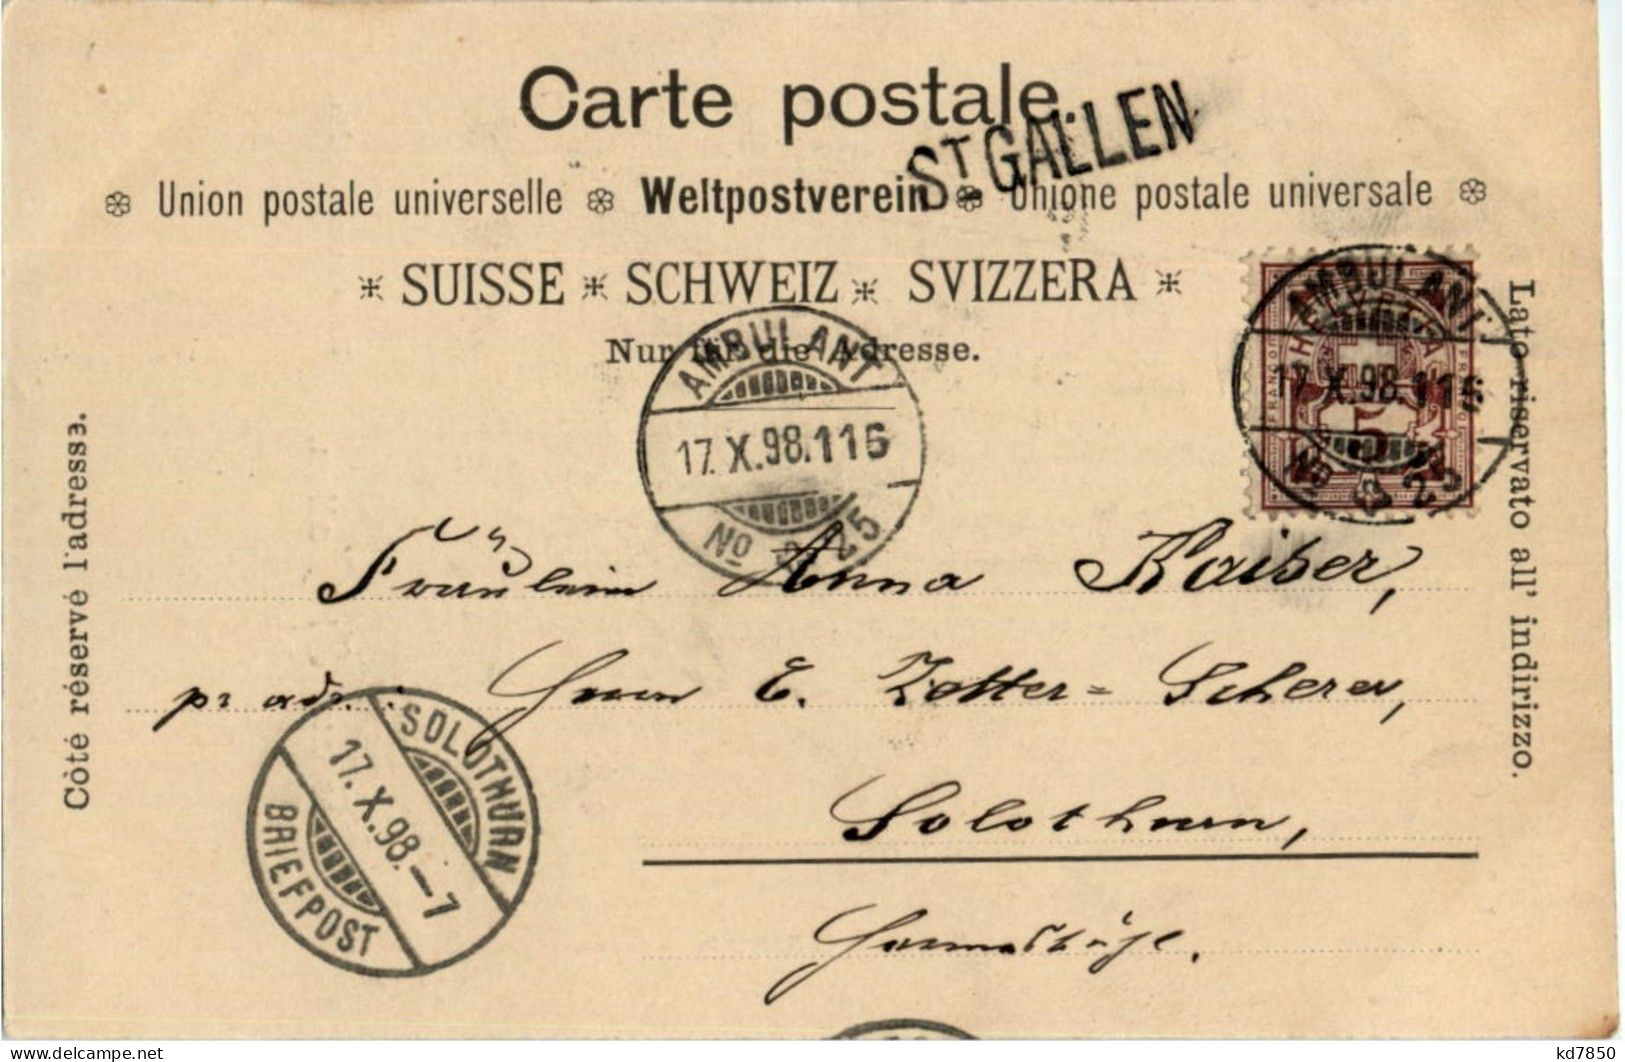 Carte postale.
ST GALLEN
Union postale universelle Weltpostverein Unione postale universale
SUISSE SCHWEIZ SVIZZERA
Nur für die Adresse.
Côté réservé à l'adresse.
Lato riservato all' indirizzo.
AMBULANT
17.X.98.116
No 25
HELVETIA
FRANCO
5
AMBULANT
17.X.98.116
No 25
Fräulein Anna Kaiser,
pr adr. : Herrn E. Zetter-Scherer,
Solothurn,
SOLOTHURN
17.X.98.–7
BRIEFPOST
delcampe.net
kd7850